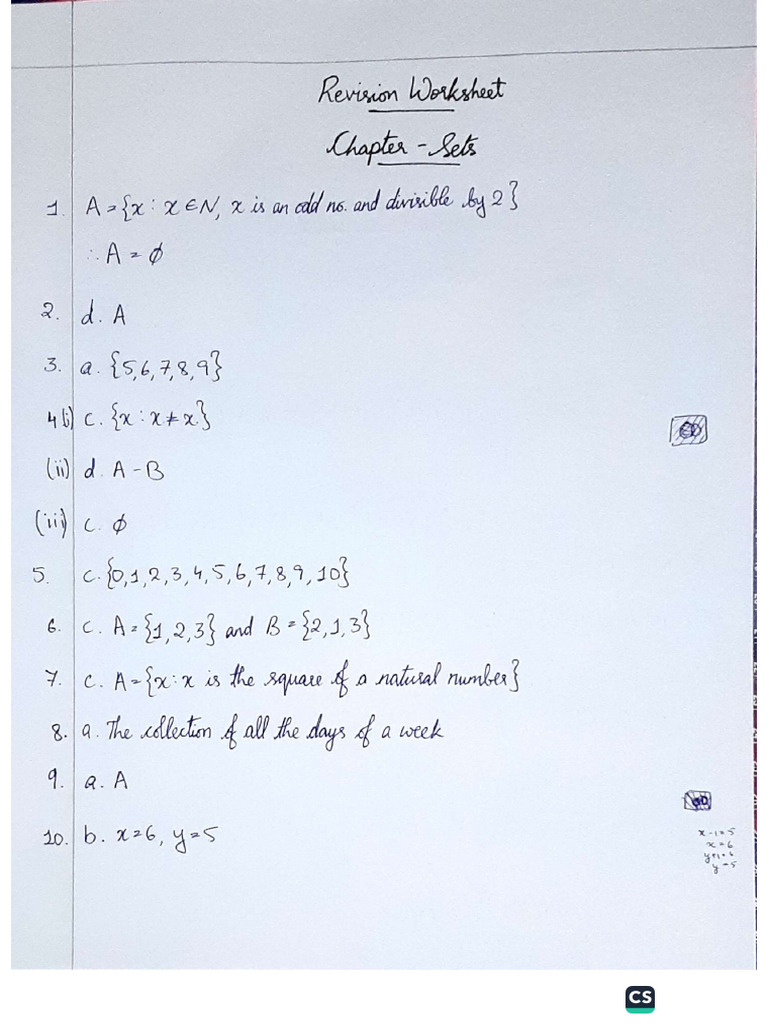 Revision Worksheet
Chapter - Sets
1. A = {x : x ∈ N, x is an odd no. and divisible by 2}
∴ A = ϕ
2. d. A
3. a. {5,6,7,8,9}
4(i) c. {x : x ≠ x}
(ii) d. A - B
(iii) c. ϕ
5. c. {0,1,2,3,4,5,6,7,8,9,10}
6. c. A = {1,2,3} and B = {2,1,3}
7. c. A = {x : x is the square of a natural number}
8. a. The collection of all the days of a week
9. a. A
10. b. x = 6, y = 5
x - 1 = 5
x = 6
y + 1 = 6
y = 5
CS